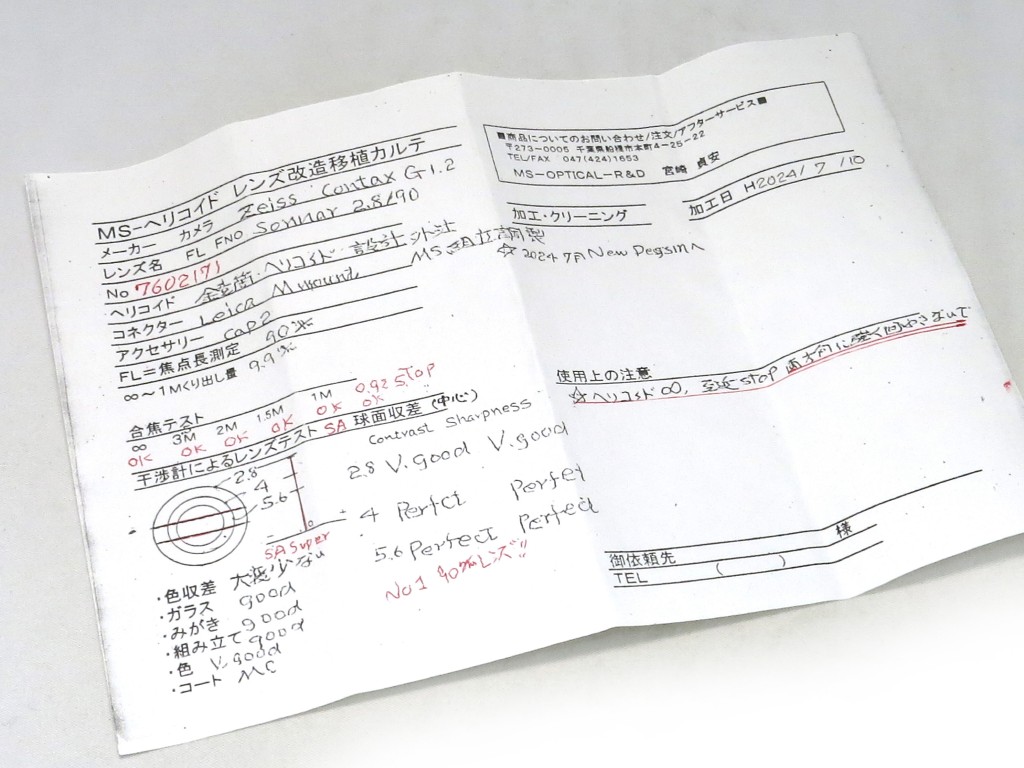 MS-ヘリコイド レンズ改造移植カルテ
メーカー カメラ Zeiss Contax G1.2
レンズ名 FL FNO Sonnar 2.8/90
No 7602171
ヘリコイド 全真鍮・ヘリコイド・設計 外注 MS組立調製
コネクター Leica Mmount
アクセサリー cap2
FL=焦点長測定 90㎜
∞〜1Mくり出し量 9.9㎜
合焦テスト
∞ 3M 2M 1.5M 1M 0.92 STOP
OK OK OK OK OK OK
干渉計によるレンズテスト SA 球面収差(中心)
Contrast Sharpness
2.8 2.8 V.good V.good
4 4 Perfct Perfet
5.6 5.6 Perfect Perfect
SA Super
No1 90㎜レンズ!!
・色収差 大変少ない
・ガラス good
・みがき good
・組み立て good
・色 V.good
・コート MC
■商品についてのお問い合わせ/注文/アフターサービス■
〒273-0005 千葉県船橋市本町4-25-22
TEL/FAX 047(424)1653
MS-OPTICAL-R&D 宮崎 貞安
加工・クリーニング
加工日 H2024/7/10
☆2024 7月 New Degsinへ
使用上の注意
☆ヘリコイド∞, 至近STOP 両方向に強く回わさないで
御依頼先 様
TEL ( )